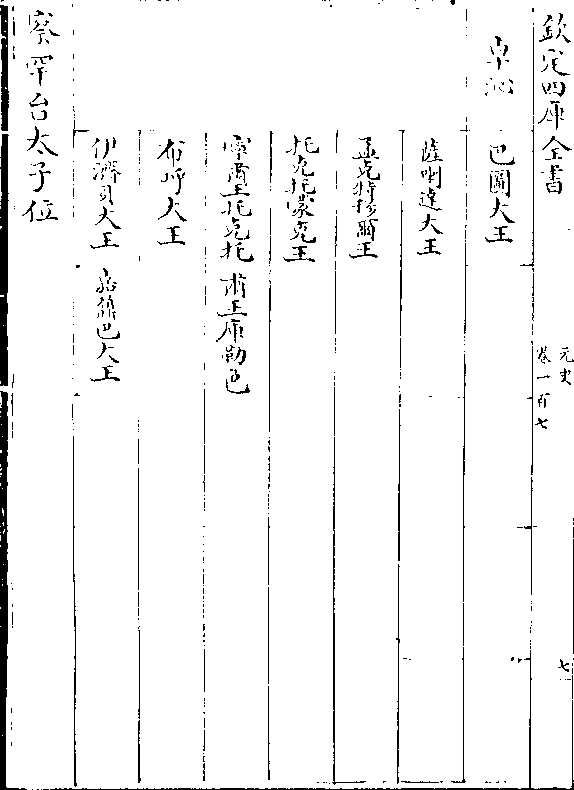 欽定四庫全書
元史
卷一百七
七
卓沁
巴圖大王
薩喇達大王
孟克特穆爾王
托克托蒙克王
寧肅王托克托
肅王庫勒克
布呼大王
伊濟貝大王
嘉鼐巴大王
察罕台太子位